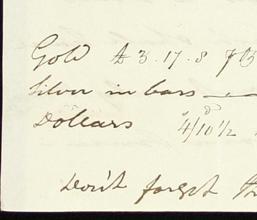 Gold £ 3.17.8
Silver in bars —
Dollars 4/10 1/2
Don't forget